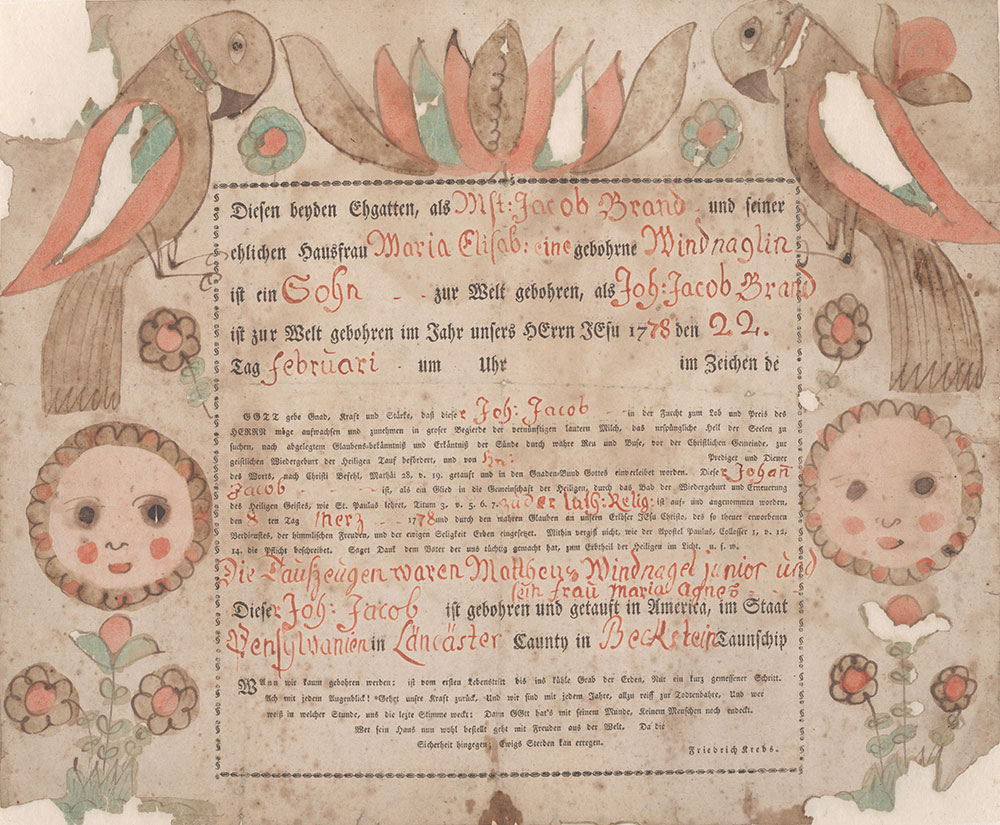 Diesen beyden Ehgatten, als Mst: Jacob Brand und seiner
ehlichen Hausfrau Maria Elisab: eine gebohrne Windnaglin
ist ein Sohn - - zur Welt gebohren, als Joh: Jacob Brand
ist zur Welt gebohren im Jahr unsers HErrn JEsu 1778 den 22.
Tag februari - um Uhr im Zeichen de
GOTT gebe Gnad, Kraft und Stärke, daß dieser Joh: Jacob - in der Furcht zum Lob und Preis des
HERRN möge aufwachsen und zunehmen in groser Begierde der vernünftigen lautern Milch, das ursprüngliche Heil der Seelen zu
suchen, nach abgelegtem Glaubens-bekäntniß und Erkäntniß der Sünde durch wahre Reu und Buse, vor der Christlichen Gemeinde, zur
geistlichen Wiedergeburt der Heiligen Tauf befördert, und von Hn: Prediger und Diener
des Worts, nach Christi Befehl, Mathäi 28, v. 19. getauft und in den Gnaden-Bund Gottes einverleibet worden. Dieser Johañ
Jacob - - - - ist, als ein Glied in die Gemeinschaft der Heiligen, durch das Bad der Wiedergeburt und Erneuerung
des Heiligen Geistes, wie St. Paulus lehret, Titum 3. v. 5. 6. 7. zu der luth: Relig: ist auf- und angenommen worden,
den 8 ten Tag Merz - - 1778 und durch den wahren Glauben an unserm Erlöser JEsu Christo, des so theuer erworbenen
Verdienstes, der himmlischen Freuden, und der ewigen Seligkeit Erben eingesetzet. Mithin vergiß nicht, wie der Apostel Paulus, Collosser 1, v. 12,
14. die Pflicht beschreibet. Saget Dank dem Vater der uns tüchtig gemacht hat, zum Erbtheil der Heiligen im Licht. u. s. w.
Die Taufzeugen waren Mattheus Windnagel junior und
sein frau maria Agnes - - -
Dieser Joh: Jacob ist gebohren und getauft in America, im Staat
Pensylvanien in Läncäster Caunty in Beckstein Taunschip
Wann wir kaum gebohren werden: ist vom ersten Lebenstritt bis ins kühle Grab der Erden, Nur ein kurz gemessener Schritt.
Ach mit jedem Augenblick! Gehet unsre Kraft zurück, Und wir sind mit jedem Jahre, allzu reiff zur Todtenbahre, Und wer
weiß in welcher Stunde, uns die lezte Stimme weckt: Dann GOtt hat's mit seinem Munde, Keinem Menschen noch endeckt.
Wer sein Haus nun wohl bestellt geht mit Freuden aus der Welt. Da die
Sicherheit hingegen, Ewigs Sterben kan erregen.
Friedrich Krebs.